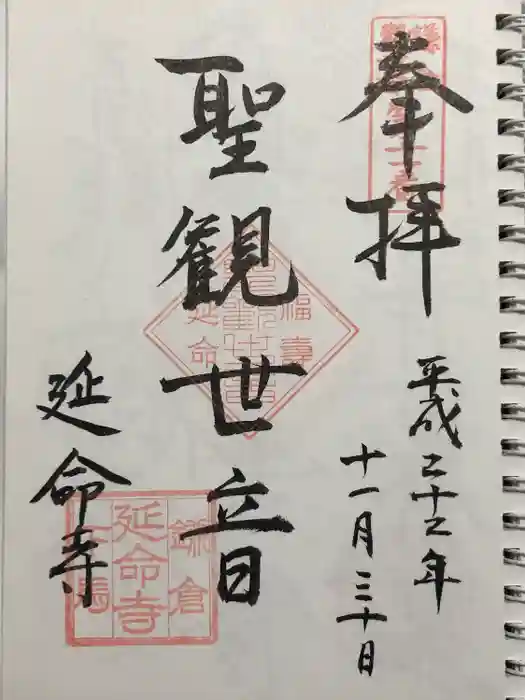 奉拝
平成二十二年
十一月三十日
聖観世音
延命寺
福寿
延命
鎌倉
延命寺